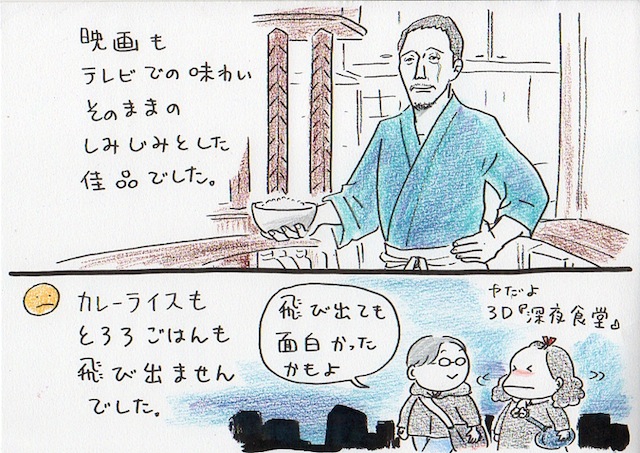 映画も
テレビでの味わい
そのままの
しみじみとした
佳品でした。
カレーライスも
とろろごはんも
飛び出ません
でした。
飛び出ても
面白かった
かもよ
ヤだよ
3D『深夜食堂』